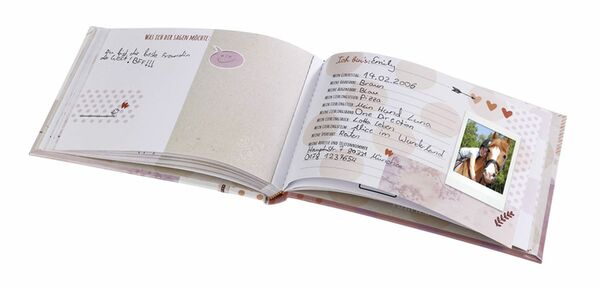 WAS ICH DIR SAGEN MÖCHTE:
Du bist die beste Freundin
der Welt! BFF!!!
Ich bin's: Emily
MEIN GEBURTSTAG: 14.02.2006
MEINE HAARFARBE: Braun
MEINE AUGENFARBE: Blau
MEIN LIEBLINGSESSEN: Pizza
MEIN LIEBLINGSTIER: Mein Hund Luna
MEINE LIEBLINGSBAND: One Direction
MEIN LIEBLINGSBUCH: Lotta Leben
MEIN LIEBLINGSFILM: Alice im Wunderland
MEINE HOBBYS: Reiten
MEINE ADRESSE UND TELEFONNUMMER:
Hauptstr. 7 80331 München
0178 1237654